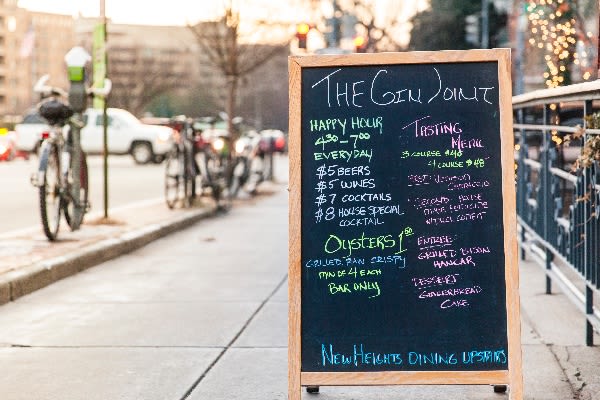 THE GIN JOINT
HAPPY HOUR
4:30-7:00
EVERYDAY
$5 BEERS
$5 WINES
$7 COCKTAILS
$8 HOUSE SPECIAL
COCKTAIL
OYSTERS 1.50
GRILLED, RAW, CRISPY
MIN OF 4 EACH
BAR ONLY
TASTING
MENU
3 COURSE $40
4 COURSE $48
1ST: VENISON
CARPACCIO
SECOND:
DUCK CONFIT
ENTREE:
GRILLED BISON
HANGAR
DESSERT:
GINGERBREAD
CAKE
NEW HEIGHTS DINING UPSTAIRS